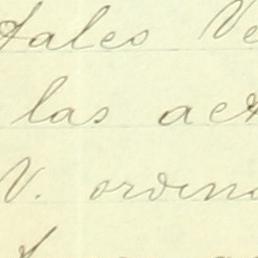 tales Ve
las act
V. ordena